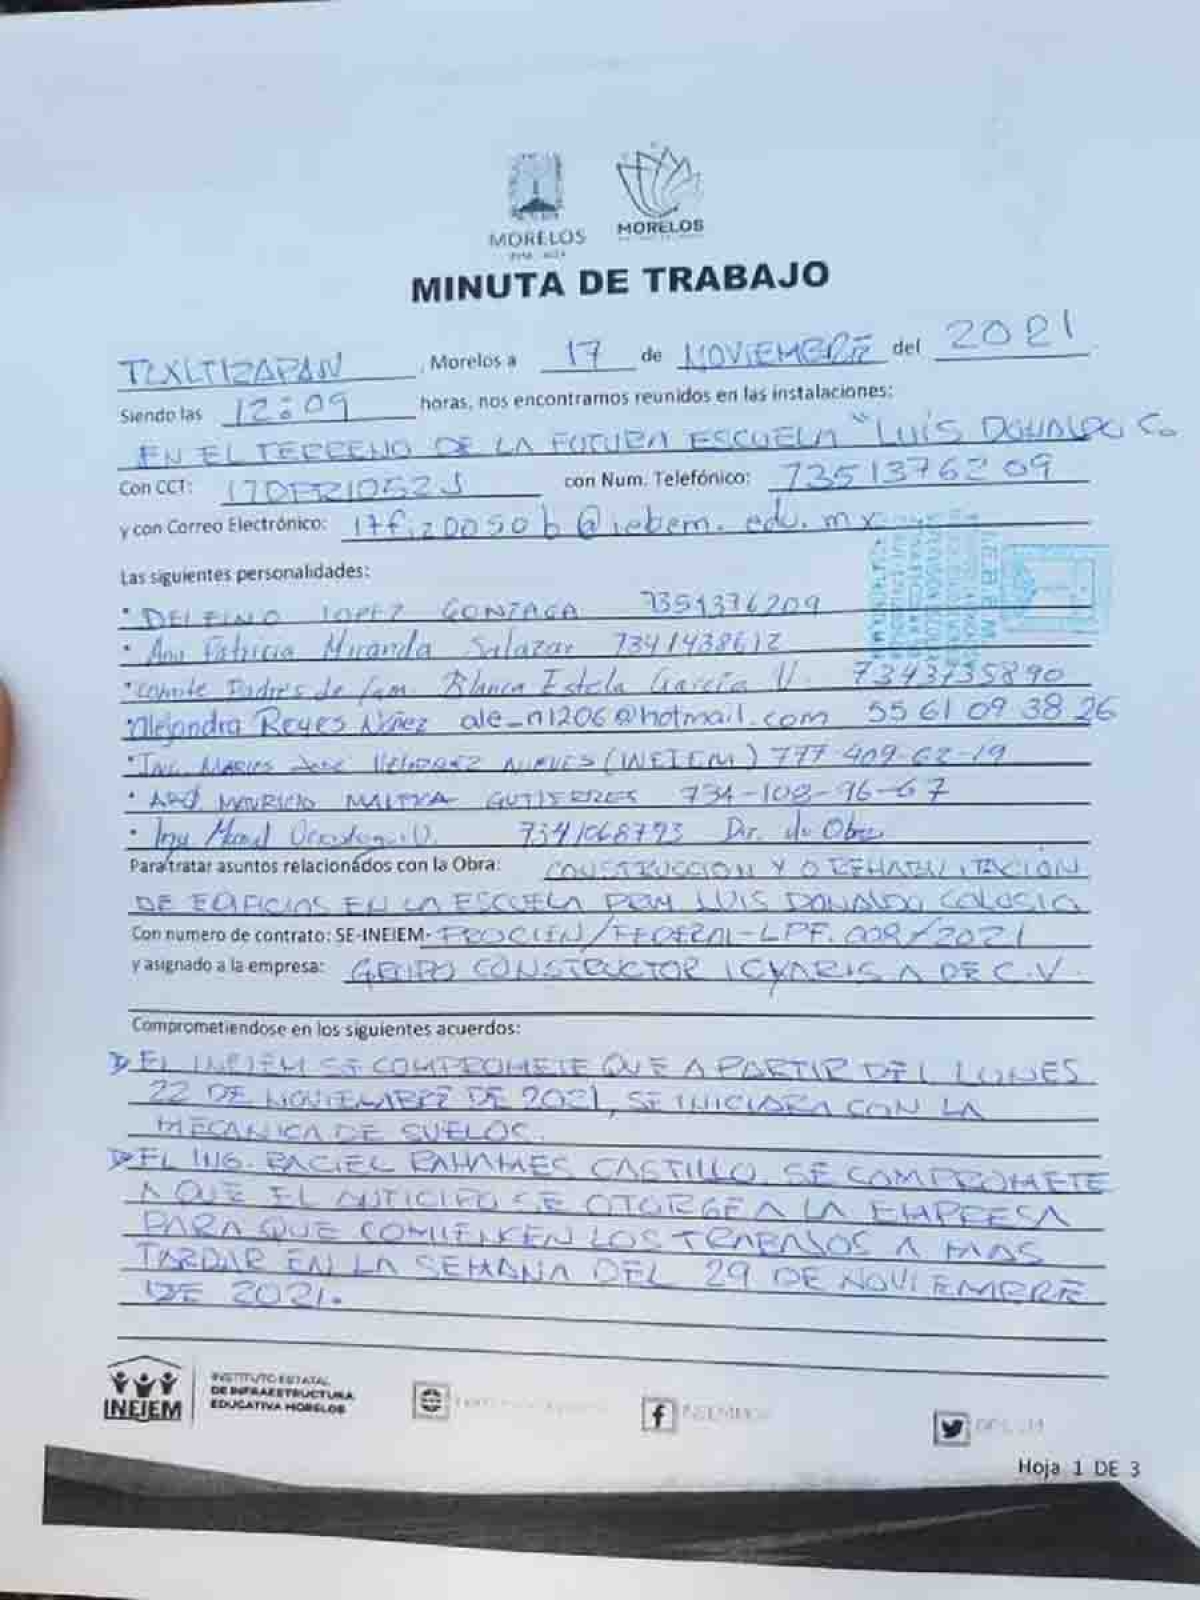 MORELOS
MORELOS
MINUTA DE TRABAJO
TLXLTIZAPAN, Morelos a 17 de NOVIEMBRE del 2021
Siendo las 12:09 horas, nos encontramos reunidos en las instalaciones:
EN EL TERRENO DE LA FUTURA ESCUELA "LUIS DONALDO C.
Con CCT: 17DPR1052J con Num. Telefónico: 7351376209
y con Correo Electrónico: 17fiz0050b@iebem.edu.mx
Las siguientes personalidades:
• DELFINO LOPEZ GONZAGA 7351376209
• Ana Patricia Miranda Salazar 7341438612
• comite Padres de fam. Blanca Estela García V. 7343735890
• Alejandra Reyes Núñez ale_n1206@hotmail.com 55 61 09 38 26
• ING. José NIEVES (INEIEM) 777-409-62-19
• ARQ MAURICIO GUTIERRES 734-108-96-67
• Ing 7341068793 Dir. de Obra
Para tratar asuntos relacionados con la Obra: CONSTRUCCION Y O REHABILITACIÓN
DE EDIFICIOS EN LA ESCUELA PRIM LUIS DONALDO COLOSIO
Con numero de contrato: SE-INEIEM-PROCIEN/FEDERAL-LPF.008/2021
y asignado a la empresa: GRUPO CONSTRUCTOR ICYARI S A DE C.V.
Comprometiendose en los siguientes acuerdos:
EL INEIEM SE COMPROMETE QUE A PARTIR DEL LUNES
22 DE NOVIEMBRE DE 2021, SE INICIARA CON LA
MECANICA DE SUELOS.
EL ING. RACIEL CASTILLO, SE COMPROMETE
A QUE EL ANTICIPO SE OTORGE A LA EMPRESA
PARA QUE COMIENCEN LOS TRABAJOS A MAS
TARDAR EN LA SEMANA DEL 29 DE NOVIEMBRE
DE 2021.
INEIEM
INSTITUTO ESTATAL
DE INFRAESTRUCTURA
EDUCATIVA MORELOS
Hoja 1 DE 3